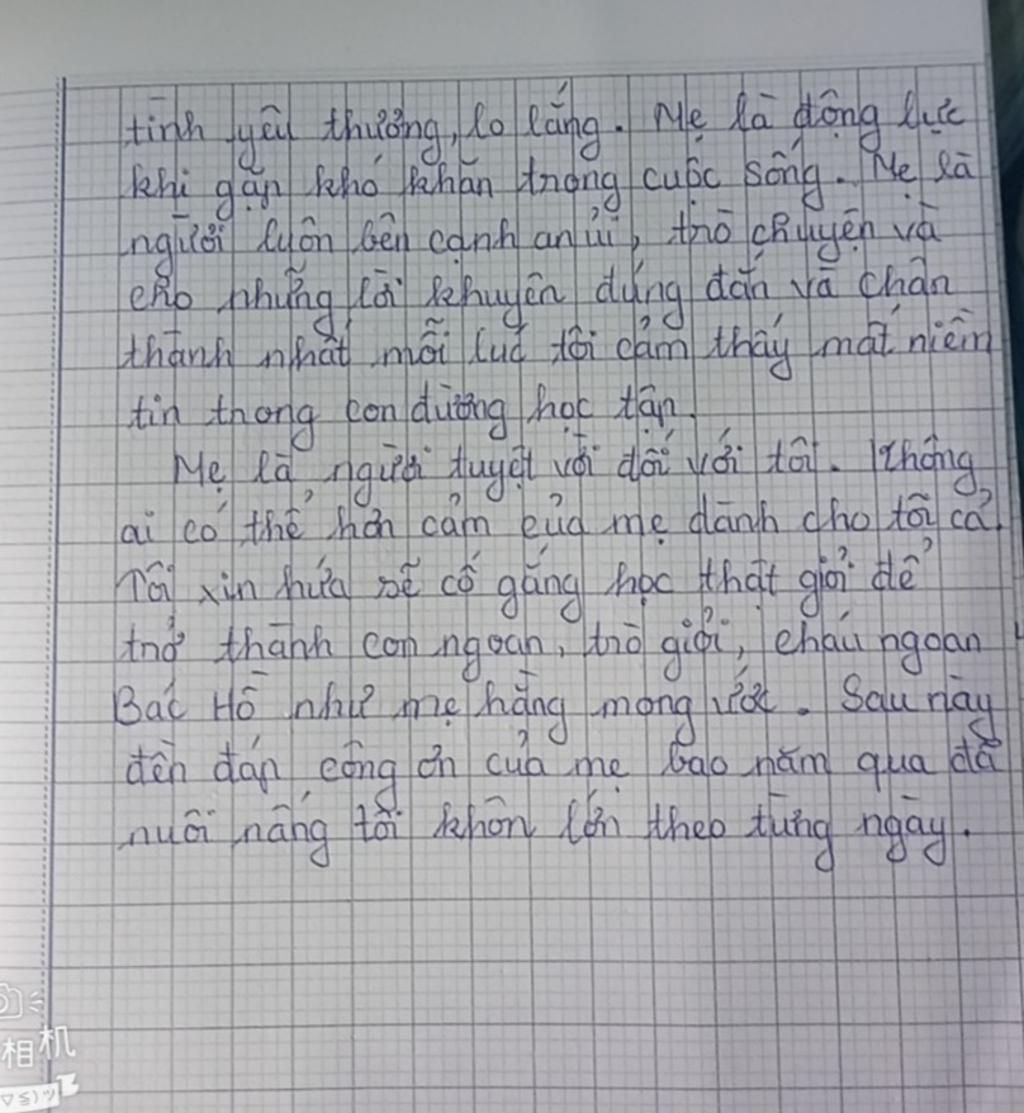 tình yêu thương, lo lắng. Mẹ là động lực
khi gặp khó khăn trong cuộc sống. Mẹ là
người luôn bên cạnh an ủi, trò chuyện và
cho những lời khuyên đúng đắn và chân
thành nhất mỗi lúc tôi cảm thấy mất niềm
tin trong con đường học tập.
Mẹ là người tuyệt vời đối với tôi. Không
ai có thể hơn cảm của mẹ dành cho tôi cả.
Tôi xin hứa sẽ cố gắng học thật giỏi để
trở thành con ngoan, trò giỏi, cháu ngoan
Bác Hồ như mẹ hằng mong ước. Sau này
đền đáp công ơn của mẹ bao năm qua đã
nuôi nấng tôi khôn lớn theo từng ngày.
相机